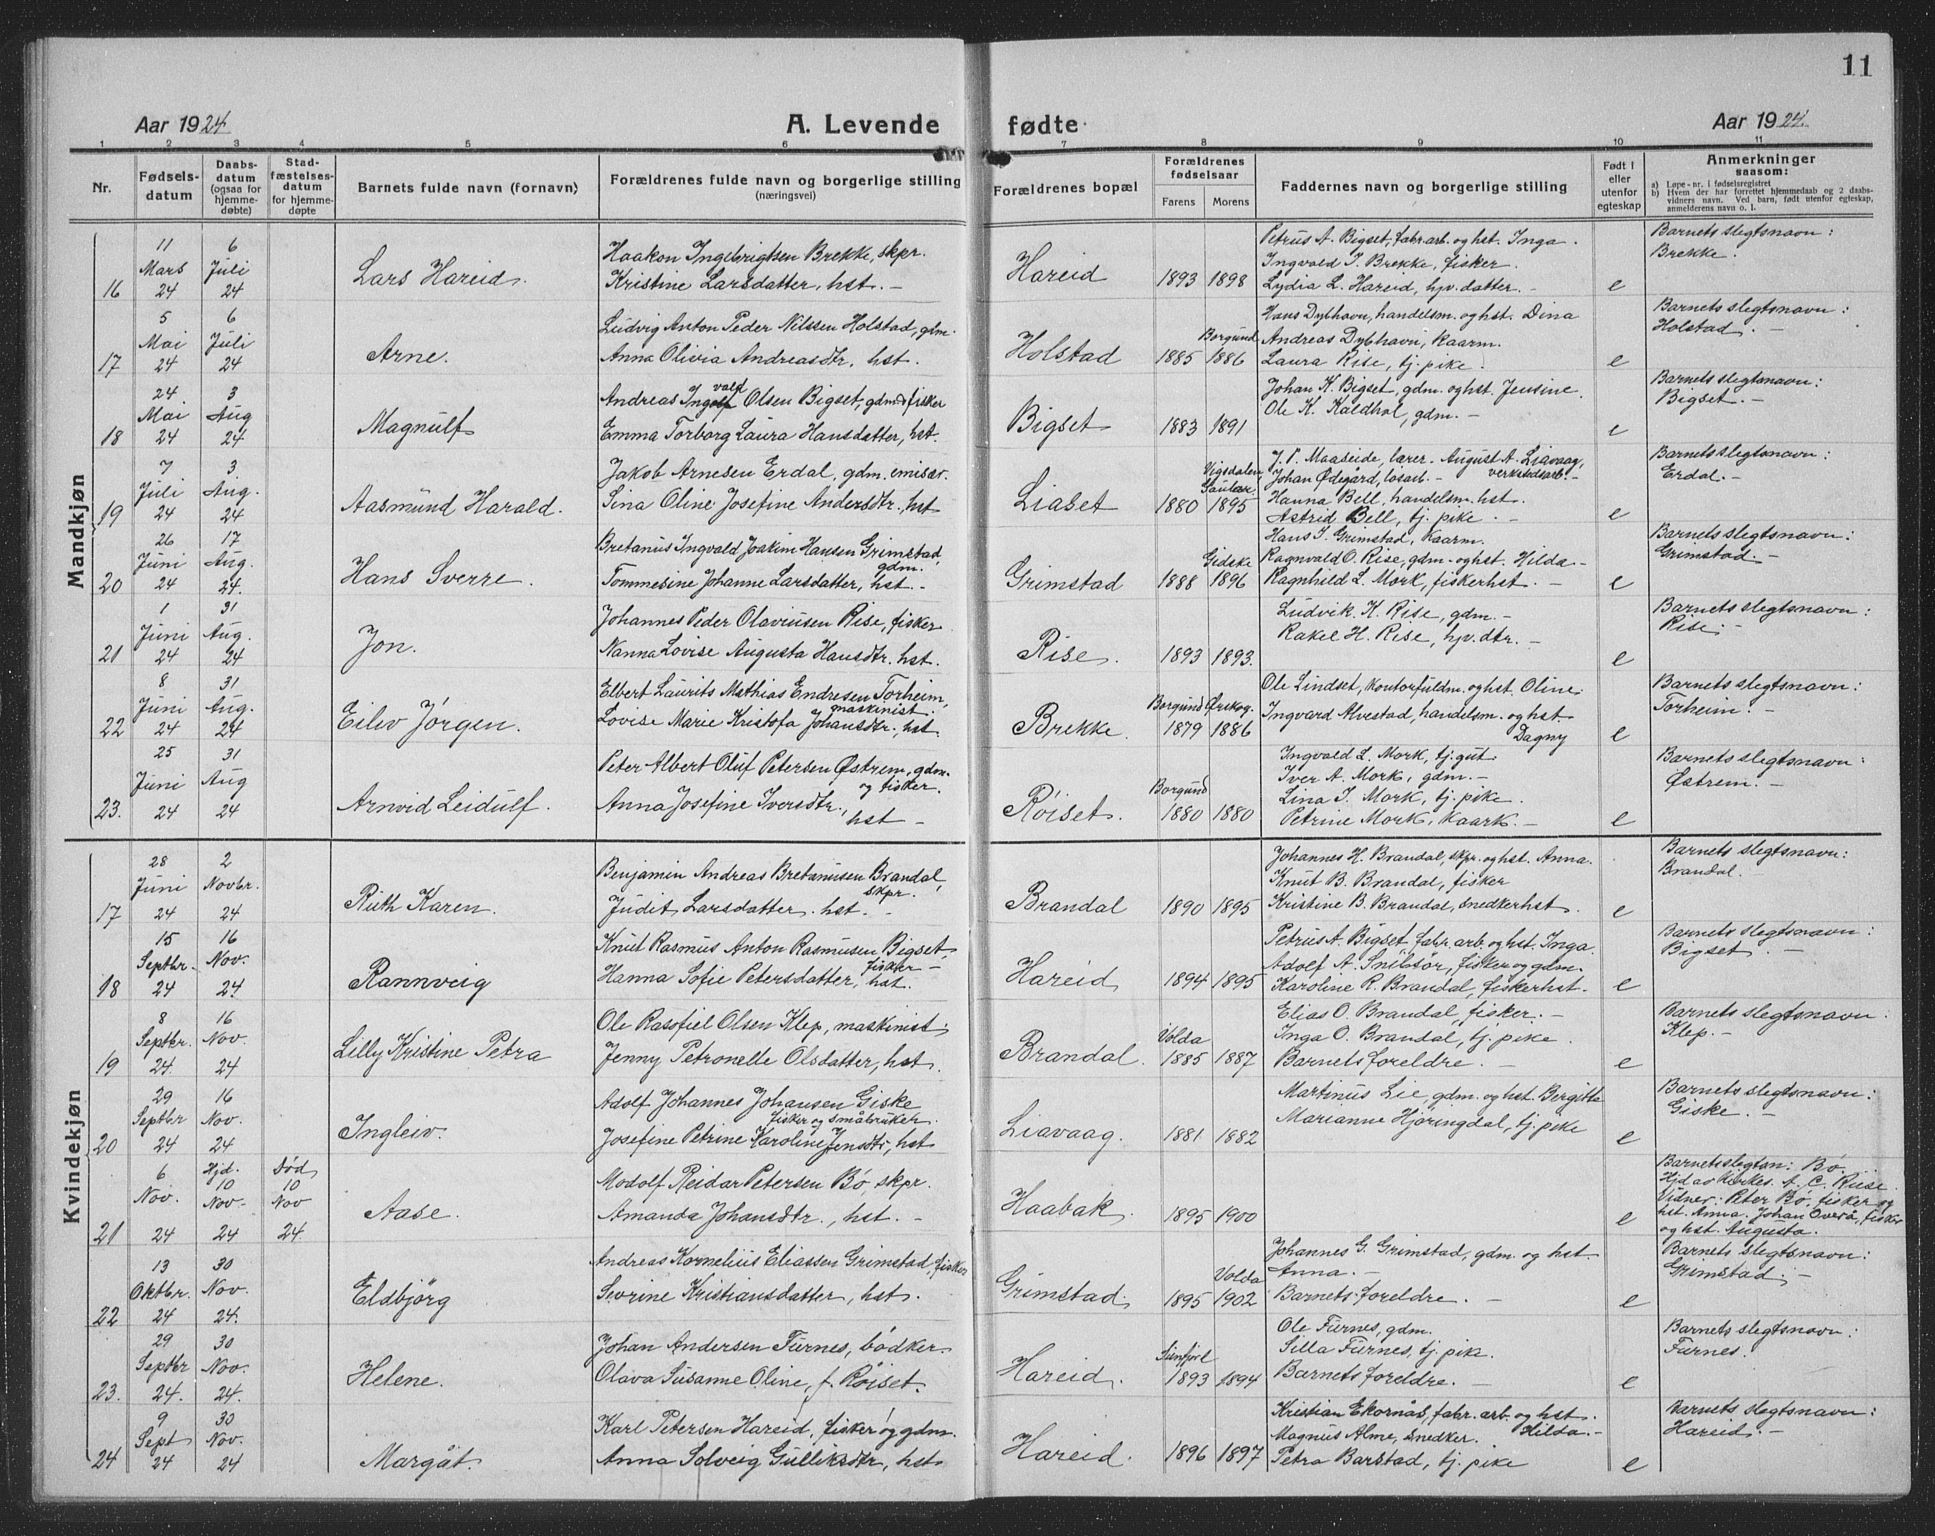 11
Aar 1924
A. Levende fødte
Aar 1924.
1 2 3 4 5 6 7 8 9 10 11
Nr.
Fødsels-
datum
Daabs-
datum
(ogsaa for
hjemme-
døbte)
Stad-
fæstelses-
datum
for hjemme-
døpte
Barnets fulde navn (fornavn)
Forældrenes fulde navn og borgerlige stilling
(næringsvei)
Forældrenes bopæl
Forældrenes
fødselsaar
Farens Morens
Faddernes navn og borgerlige stilling
Født i
eller
utenfor
egteskap
Anmerkninger
saasom:
a) Løpe-nr. i fødselsregistret
b) Hvem der har forrettet hjemmedaab og 2 daabs-
vidners navn. Ved barn, født utenfor egteskap,
anmelderens navn o. l.
Mandkjøn
16
11
Mars
24
6
Juli
24
Lars Hareid.
Haakon Ingebrigtsen Brekke, skpr.
Kristine Larsdatter, hst. -
Hareid
1893 1898
Petrus A. Bigset, fabr. arb. og hst. Inga.
Ingvald I. Brekke, fisker.
Lydia L. Hareid, hpv. datter. -
e
Barnets slegtsnavn:
Brekke.
17
5
Mai
24
6
Juli
24
Arne.
Ludvig Anton Peder Nilssen Holstad, gdm.
Anna Olivia Andreasdtr. hst.
Holstad
Borgund
1885 1886
Hans Dybhavn, handelsm. og hst. Dina
Andreas Dybhavn, kaarm.
Laura Rise, tj. pike.
e
Barnets slegtsnavn:
Holstad. -
18
24
Mai
24
3
Aug
24
Magnulf
vald
Andreas Ingolf Olsen Bigset, gdm & fisker
Emma Torborg Laura Hansdatter, hst.
Bigset
1883 1891
Johan K. Bigset, gdm. og hst. Jensine.
Ole K. Kaldhol, gdm. -
e
Barnets slegtsnavn:
Bigset. -
19
7
Juli
24
3
Aug.
24
Aasmund Harald.
Jakob Arnesen Erdal, gdm. emisær.
Sina Oline Josefine Andersdtr. hst
Liaset
Vigsdalen
1880 1895
J. P. Maaseide, lærer. August A. Liavaag,
verkstadsarb. -
Johan Ødegård, løsarb. -
Hanna Bell, handelsm. hst.
Astrid Bell, tj. pike. -
e
Barnets slegtsnavn:
Erdal. -
20
26
Juni
24
17
Aug.
24.
Hans Sverre.
Bretanus Ingvald Joakim Hansen Grimstad,
gdm.
Tommesine Johanne Larsdatter, hst. -
Grimstad
Giske
1888 1896
Hans I. Grimstad, kaarm.
Ragnvald O. Rise, gdm. og hst. Hilda -
Ragnhild L. Mork, fiskerhst. -
e
Barnets slegtsnavn:
Grimstad. -
21
1
Juni
24
31
Aug.
24
Jon.
Johannes Peder Olaviusen Rise, fisker
Nanna Lovise Augusta Hansdtr. hst.
Rise.
1893 1893.
Ludvik K. Rise, gdm. -
Rakel H. Rise, hpv. dtr. -
e
Barnets slegtsnavn:
Rise. -
22
8
Juni
24
31
Aug.
24
Eilev Jørgen.
Elbert Laurits Mathias Endresen Torheim,
maskinist.
Lovise Marie Kristofa Johansdtr., hst.
Brekke.
Borgund Ørskog.
1879 1886
Ole Lindset, kontorfuldm. og hst. Oline.
Ingvard Alvestad, handelsm. og hst
Dagny
e
Barnets slegtsnavn:
Torheim. -
23.
25
Juni
24
31
Aug
24
Arnvid Leidulf.
Peter Albert Oluf Petersen Østrem, gdm.
og fisker.
Anna Josefine Iversdtr.,
hst -
Røiset.
Borgund
1880 1880
Ingvald L. Mork, tj. gut
Iver A. Mork, gdm. -
Lina I. Mork, tj. pike.
Petrine Mork, kaark. -
e
Barnets slegtsnavn:
Østrem. -
Kvindekjøn
17
28
Juni
24
2
Novbr.
24
Ruth Karen.
Benjamin Andreas Bretanusen Brandal,
skpr.
Judit Larsdatter. hst. -
Brandal
1890 1895
Johannes H. Brandal, skpr. og hst. Anna.
Knut B. Brandal, fisker
Kristine B. Brandal, snedkerhst.
e
Barnets slegtsnavn:
Brandal.
18
15
Septbr.
24
16
Nov.
24
Rannveig
Knut Rasmus Anton Rasmusen Bigset,
fisker -
Hanna Sofie Petersdatter, hst.
Hareid
1894 1895
Petrus A. Bigset, fabr. arb. og hst. Inga.
Adolf A. Snibsør, fisker og gdm.
Karoline R. Brandal, fiskerhst.
e
Barnets slegtsnavn:
Bigset.
19
8
Septbr.
24
16
Nov.
24
Lilly Kristine Petra
Ole Rasofiel Olsen Klep, maskinist.
Jenny Petronelle Olsdatter, hst.
Brandal.
Volda
1885 1887
Elias O. Brandal, fisker. -
Inga O. Brandal, tj. pike.
Barnets foreldre. -
e
Barnets slegtsnavn:
Klep. -
20
29
Septbr
24
16
Nov.
24
Ingleiv.
Adolf Johannes Johansen Giske
fisker og småbruker.
Josefine Petrine Karoline Jensdtr, hst
Liavaag.
1881 1882
Martinus Lie, gdm. og hst. Bergitta
Marianne Hjøringdal, tj. pike
e
Barnets slegtsnavn:
Giske. -
21
6
Nov.
24
Hjd.
10
Nov.
24
Død
10
Nov
24.
Aase.
Modolf Reidar Petersen Bø, skpr.
Amanda Johansdtr., hst. -
Haabak.
1895 1900
e
Barnets slegtsn: Bø.
Hjd av Kirkes. A. C. Riise.
Vidner: Peter Bø, fisker og
hst. Anna. Johan Overå, fisker
og hst. Augusta.
22
13
Oktbr.
24
30
Nov.
24.
Eldbjørg
Andreas Kornelius Eliassen Grimstad, fisker
Sevrine Kristiansdatter, hst.
Grimstad.
Volda
1895 1902
Johannes G. Grimstad, gdm. og hst.
Anna. -
Barnets foreldre. -
e
Barnets slegtsnavn:
Grimstad. -
23.
29
Septbr
24.
30
Nov.
24.
Helene.
Johan Andersen Furnes, bødker
Olava Susanne Oline, f. Røiset.
Hareid.
Sunfjord
1893 1894
Ole Furnes, gdm.
Silla Furnes, tj. pik.
Barnets foreldre. -
e
Barnets slegtsnavn:
Furnes.
24
9
Sept
24
30
Nov.
24
Margåt.
Karl Petersen Hareid, fisker og gdm.
Anna Solveig Gulliksdtr, hst
Hareid.
1896 1897
Kristian Ekornås, fabr. arb. og hst.
Hilda. -
Magnus Alme, snedker.
Petra Barstad, tj. pike
e
Barnets slegtsnavn:
Hareid. -